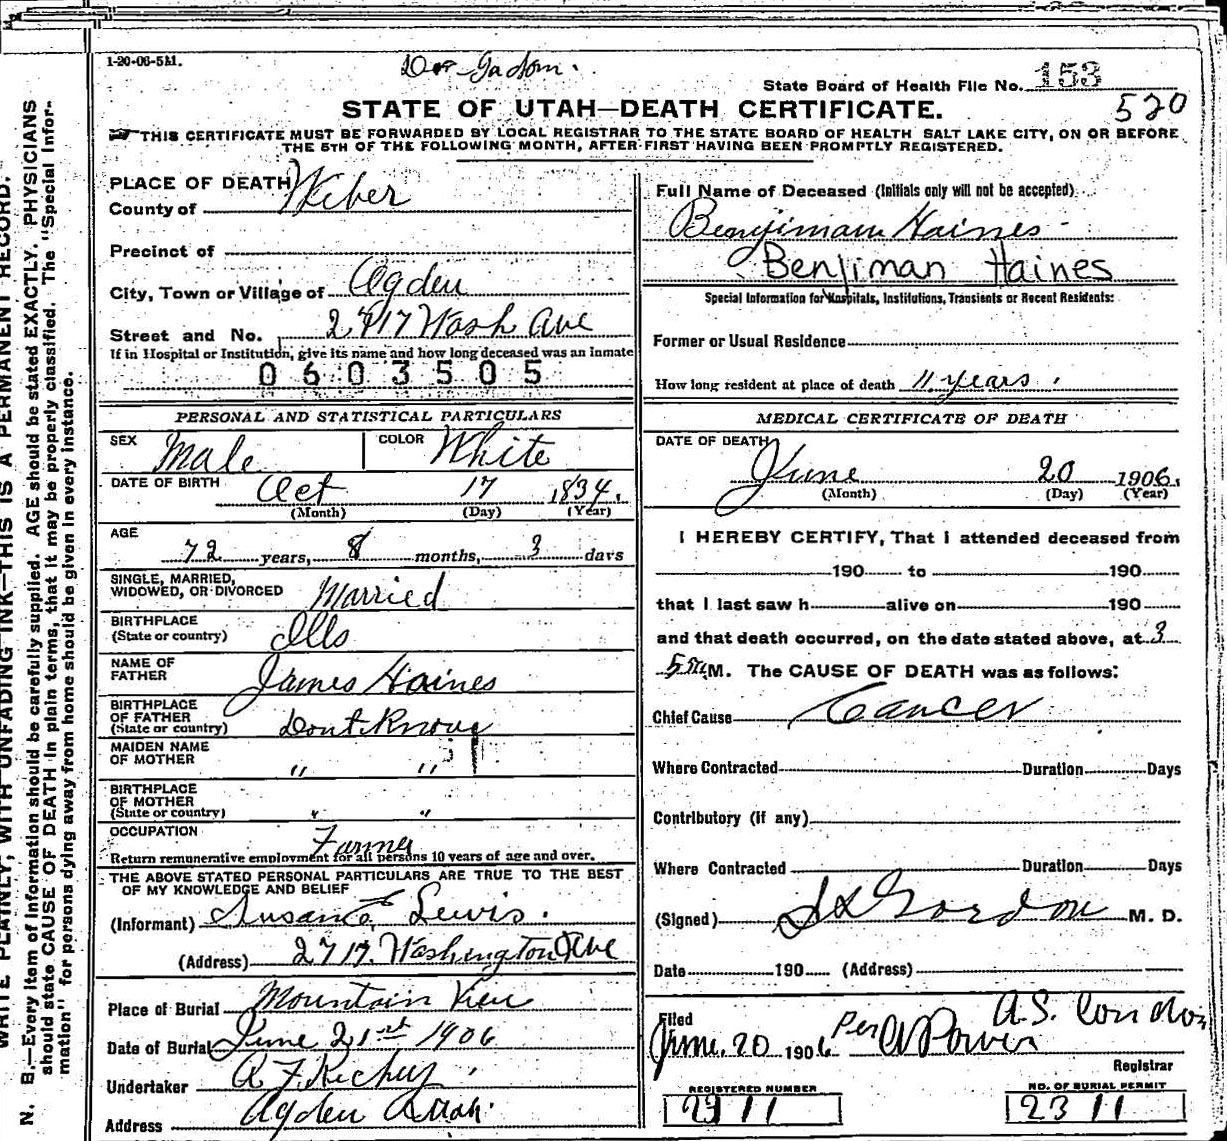 1-20-06-5M.
State Board of Health File No. 153
520
STATE OF UTAH—DEATH CERTIFICATE.
THIS CERTIFICATE MUST BE FORWARDED BY LOCAL REGISTRAR TO THE STATE BOARD OF HEALTH SALT LAKE CITY, ON OR BEFORE
THE 5TH OF THE FOLLOWING MONTH, AFTER FIRST HAVING BEEN PROMPTLY REGISTERED.
PLACE OF DEATH
County of Weber
Precinct of
City, Town or Village of Ogden
Street and No. 2717 Wash Ave
If in Hospital or Institution, give its name and how long deceased was an inmate
0603505
PERSONAL AND STATISTICAL PARTICULARS
SEX Male COLOR White
DATE OF BIRTH Oct 17 1834.
(Month) (Day) (Year)
AGE
72 years, 8 months, 3 days
SINGLE, MARRIED,
WIDOWED, OR DIVORCED Married
BIRTHPLACE
(State or country) Ills
NAME OF
FATHER James Haines
BIRTHPLACE
OF FATHER
(State or country) Dont Know
MAIDEN NAME
OF MOTHER " "
BIRTHPLACE
OF MOTHER
(State or country) " "
OCCUPATION Farmer
Return remunerative employment for all persons 10 years of age and over.
THE ABOVE STATED PERSONAL PARTICULARS ARE TRUE TO THE BEST
OF MY KNOWLEDGE AND BELIEF
(Informant) Susan E. Lewis.
(Address) 2717 Washington Ave
Place of Burial Mountain View
Date of Burial June 21st 1906
Undertaker
Address Ogden Utah.
Full Name of Deceased (Initials only will not be accepted)
Benjimam Haines
Benjiman Haines
Special Information for Hospitals, Institutions, Transients or Recent Residents:
Former or Usual Residence
How long resident at place of death 11 years.
MEDICAL CERTIFICATE OF DEATH
DATE OF DEATH
June 20 1906.
(Month) (Day) (Year)
I HEREBY CERTIFY, That I attended deceased from
190 to 190
that I last saw h alive on 190
and that death occurred, on the date stated above, at 3
M. The CAUSE OF DEATH was as follows:
Chief Cause Cancer
Where Contracted Duration Days
Contributory (if any)
Where Contracted Duration Days
(Signed) Gordon M. D.
Date 190 (Address)
Filed A.S. Condon
June 20 1906 Per
Registrar
REGISTERED NUMBER
2311
NO. OF BURIAL PERMIT
2311
N. B.—Every item of information should be carefully supplied. AGE should be stated EXACTLY. PHYSICIANS
should state CAUSE OF DEATH in plain terms, that it may be properly classified. The "Special Infor-
mation" for persons dying away from home should be given in every instance.
WRITE PLAINLY, WITH UNFADING INK—THIS IS A PERMANENT RECORD.